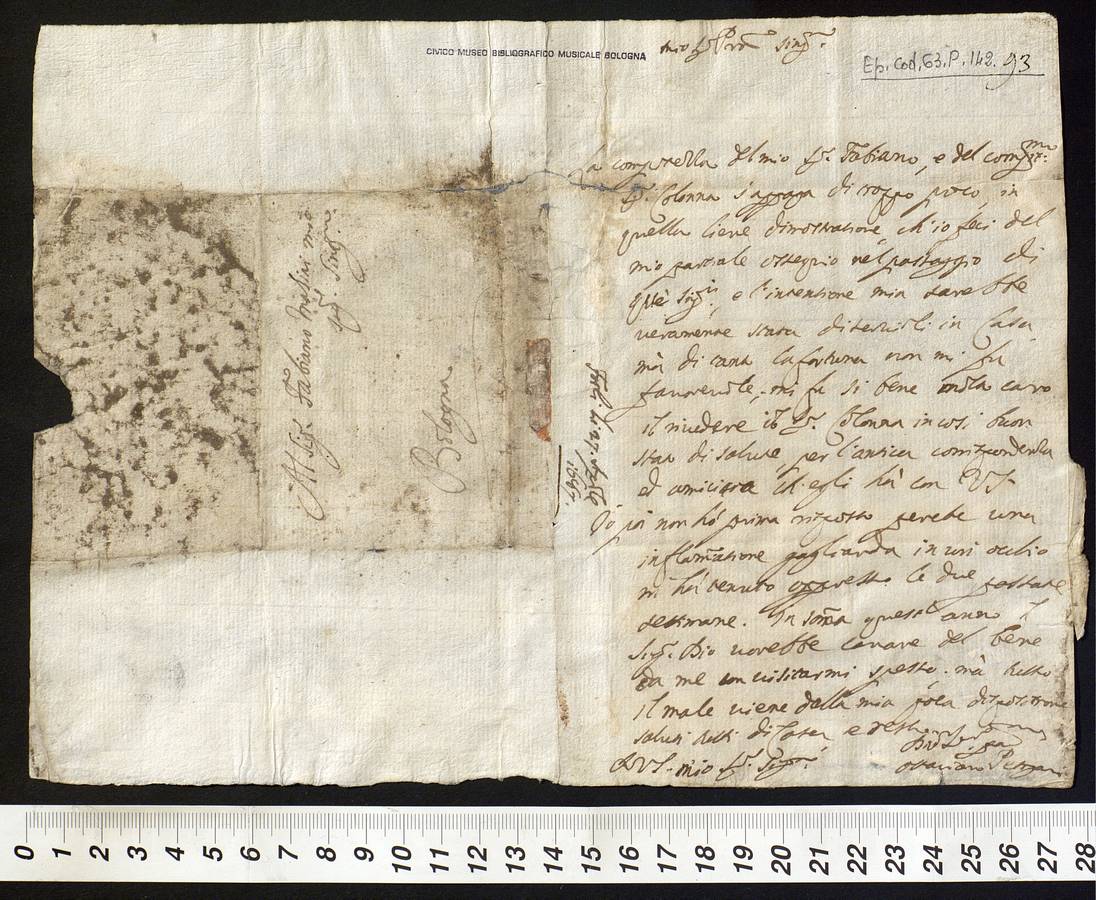 CIVICO MUSEO BIBLIOGRAFICO MUSICALE BOLOGNA
Ep. Cod. 63. P. 142. 93
mio Sig.r
La del mio Sig.r Fabiano, e del
Sig.r Colonna s'appaga di troppo poco, in
quella lieve dimostratione, ch'io feci del
mio parziale ossequio nel passaggio di
e l'intentione mia sarebbe
veramente stata di servirli in Casa
mà di tanta la fortuna non mi fu
favorevole, mi fu si bene molto caro
il rivedere il Sig.r Colonna in così buon
stato di salute, per l'antica corrispondenza
ed amicitia ch'egli hà con VS.
Io poi non hò prima risposto perche una
inflamatione gagliarda in un occhio
mi hà tenuto oppresso le due passate
settimane. In soma quest' anno il
Sig.r Dio vorebbe cavare del bene
da me con visitarmi spesso. mà tutto
il male viene dalla mia poca dispositione
saluti tutti di Casa e resto
D VS. mio Sig.r
Al Sig.r Fabiano
Bologna
1687.